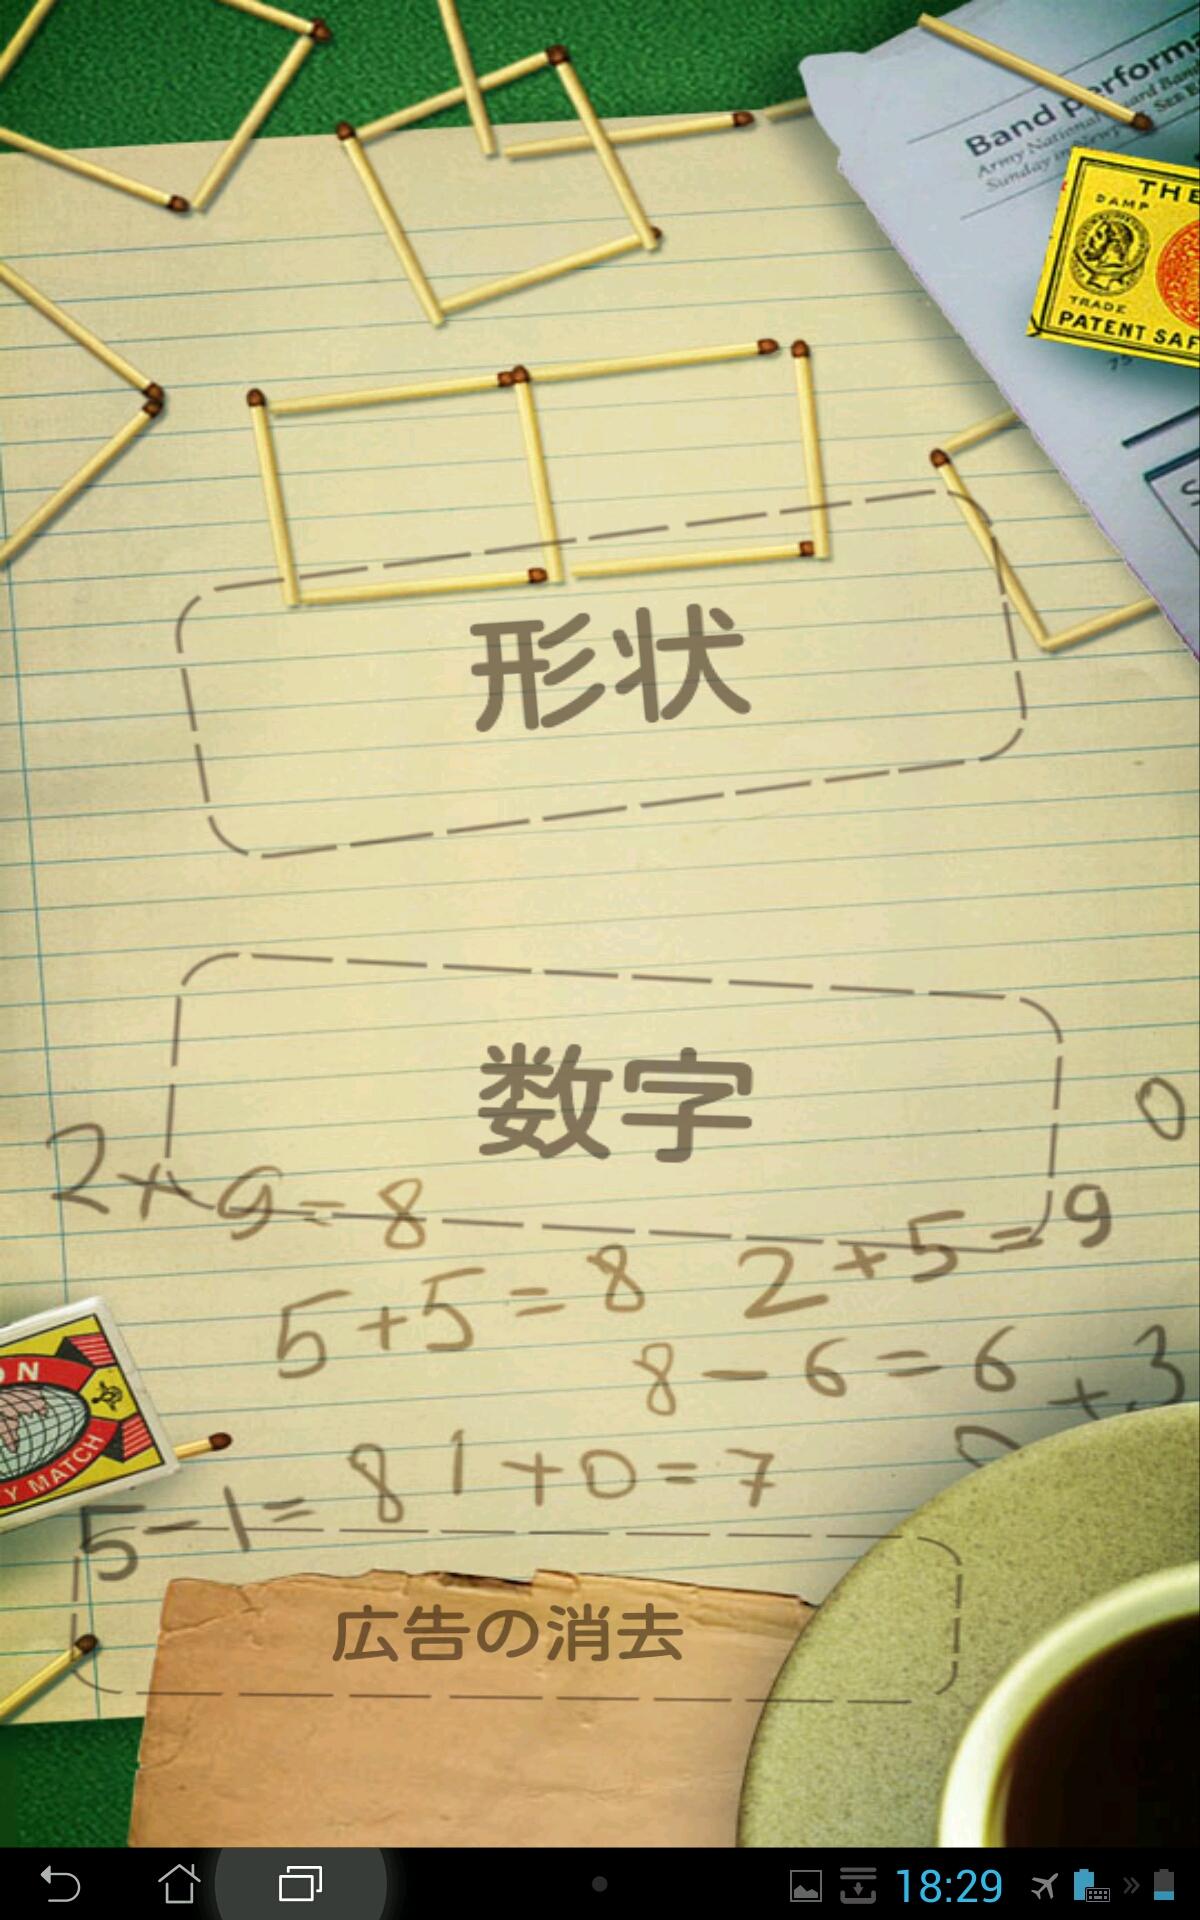 Band performa
Army National
Sunday in
THE
DAMP
TRADE
PATENT SAF
形状
数字
0
2×9=8
2+5=9
5+5=8
8-6=6
+3
1+0=7
5-1=8
ON
Y MATCH
広告の消去
18:29